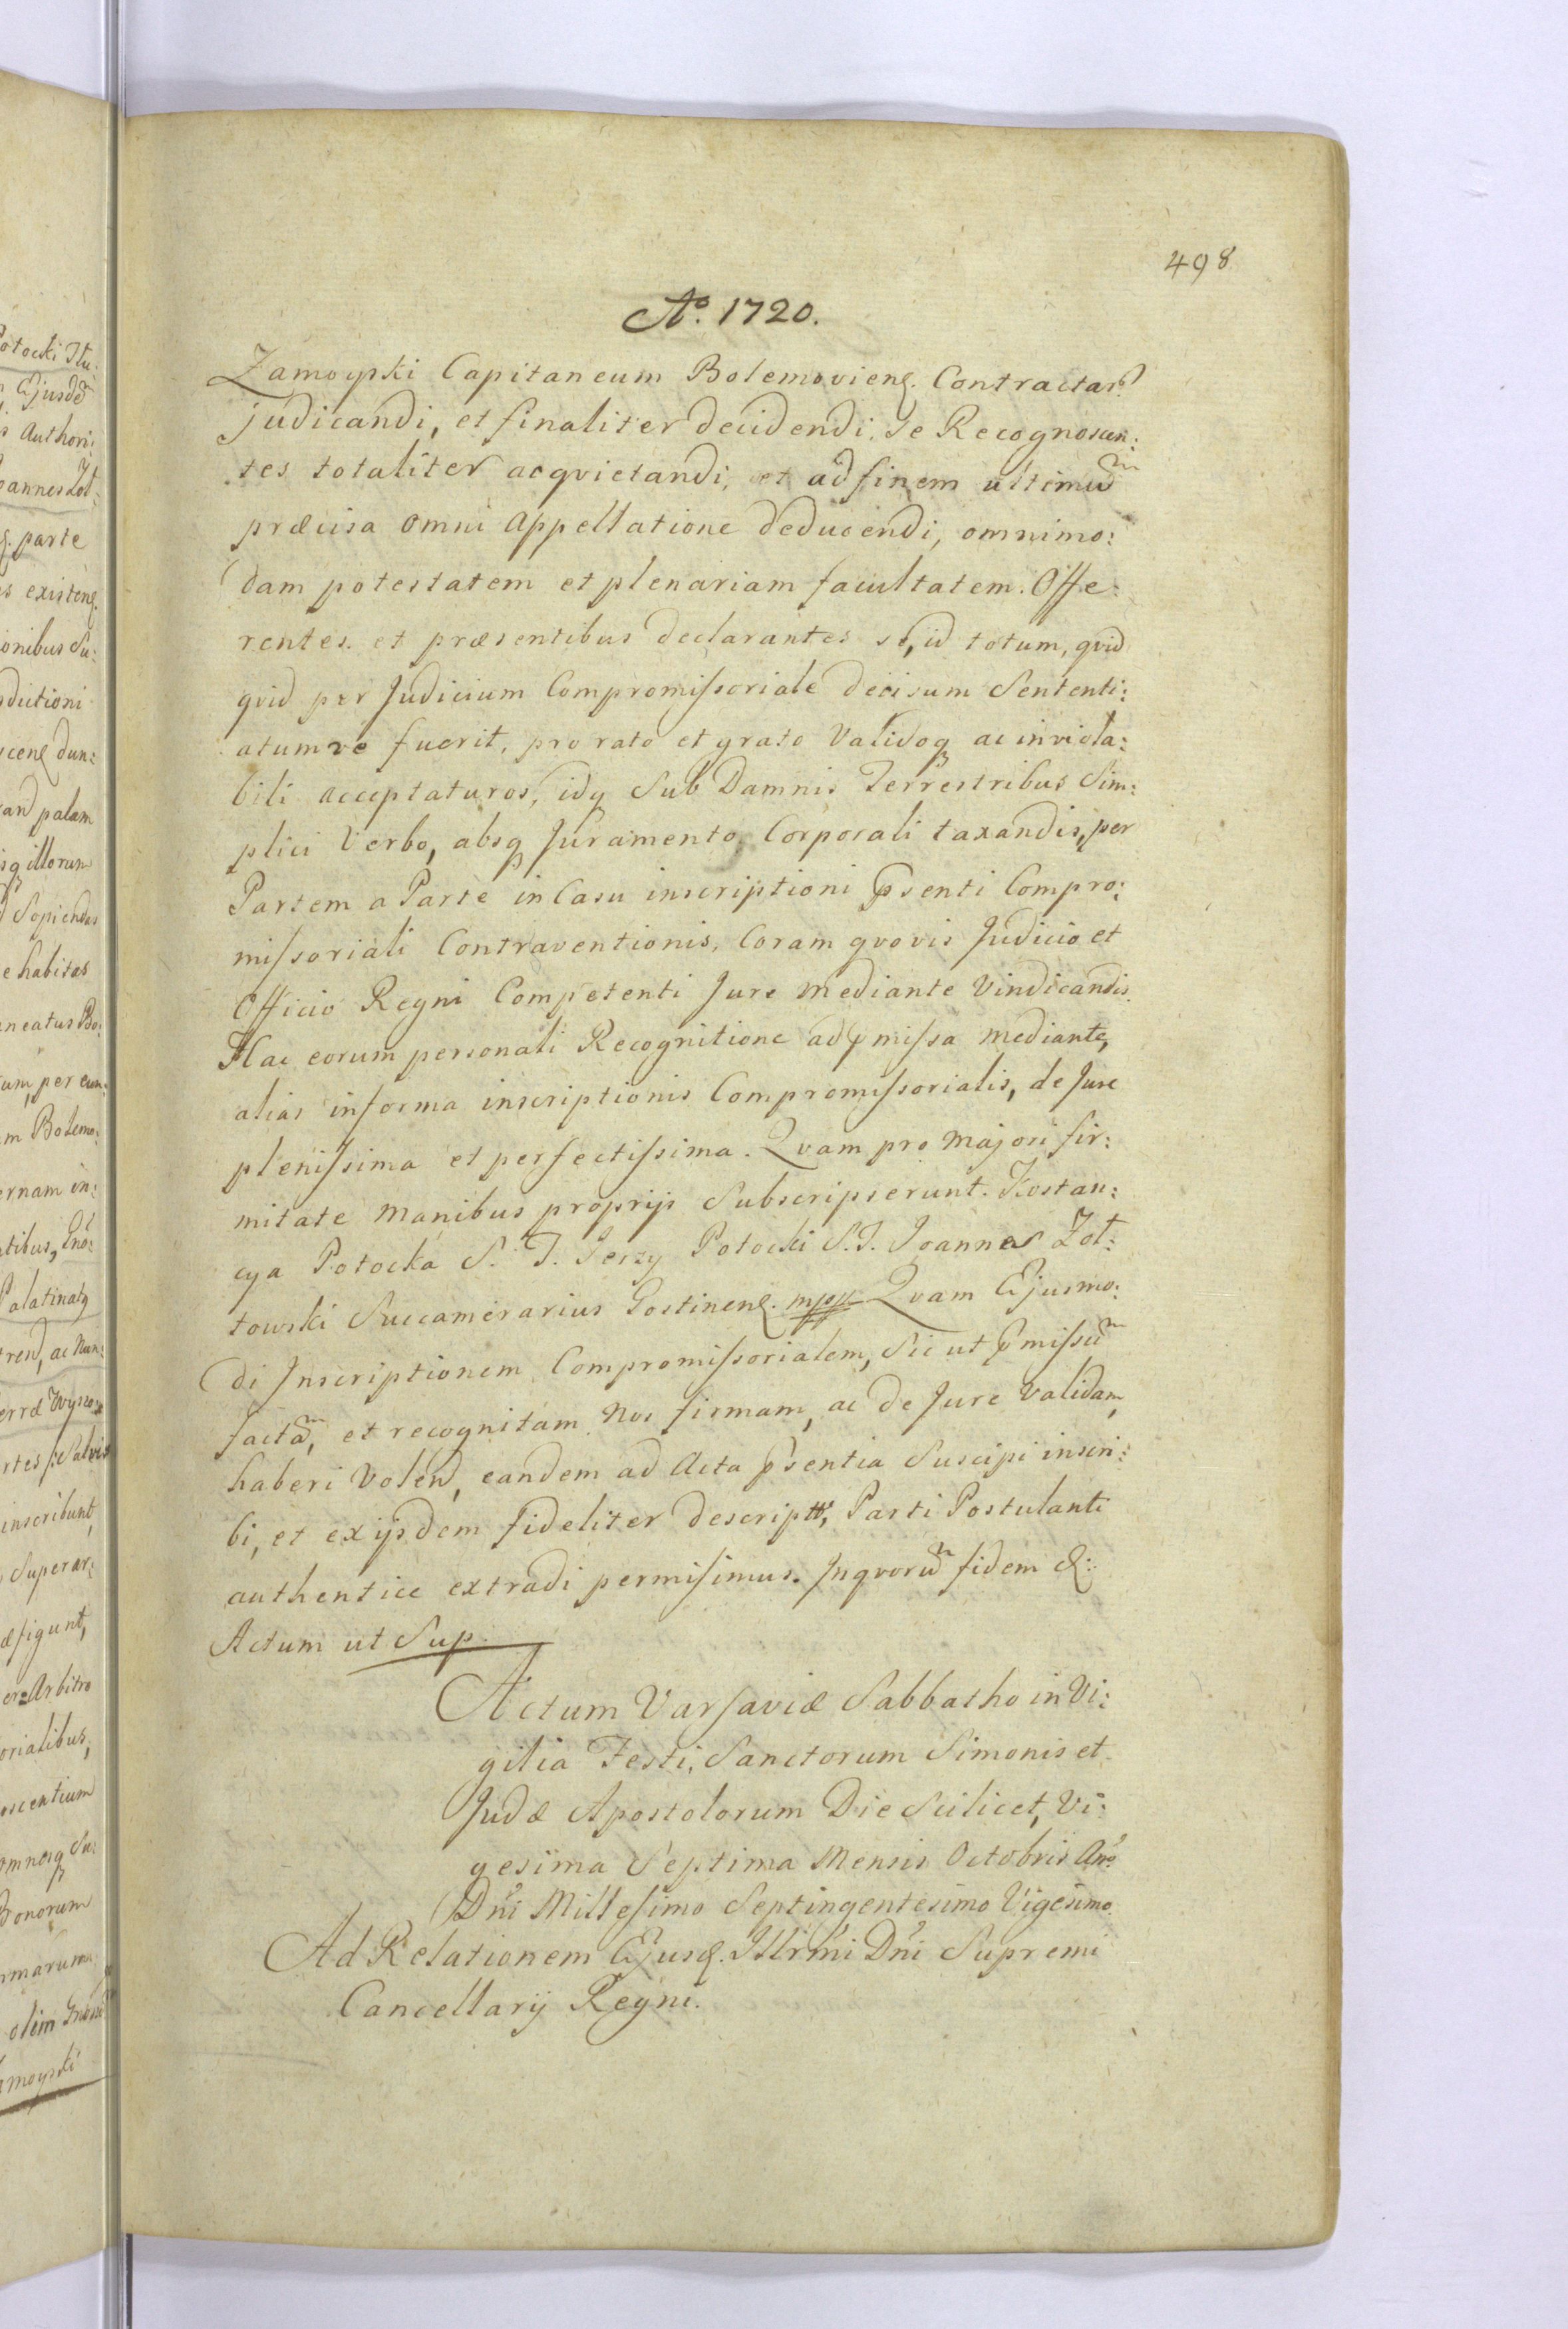 498
Aº. 1720.
Zamoyski Capitaneum Bolemoviens. Contractarũ
judicandi, et finaliter decidendi, Se Recognoscen:
tes totaliter acqvietandi, et ad finem ultimũ
præcisa omni Appellatione deducendi, omnimo:
dam potestatem et plenariam facultatem. Offe:
rentes. et præsentibus declarantes se, id totum, qvid
qvid per Judicium Compromissoriale decisum Sententi:
atumve fuerit, pro rato et grato Validoq ac inviola:
bili acceptaturos, idq Sub Damnis Terrestribus Sim:
plici Verbo, absq Juramento Corporali taxandis, per
Partem a Parte in Casu inscriptioni pſenti Compro:
missoriali Contraventionis, Coram qvovis Judicio et
Officio Regni Competenti Jure mediante Vindicandis.
Hac eorum personali Recognitione ad pmissa mediante,
alias in forma inscriptionis Compromissorialis, de Jure
plenissima et perfectissima. Qvam pro majori fir:
mitate manibus proprijs Subscripserunt. Kostan:
cya Potocka S. J. Jerzy Potocki S. J. Joannes Zoł:
towski Succamerarius Gostinens. mpp Qvam Ejusmo:
di Inscriptionem Compromissorialem, Sic ut pmissũ
factã, et recognitam Nos firmam, ac de Jure Validam
haberi Volen, eandem ad Acta pſentia Suscipi inscri:
bi, et ex ijsdem fideliter descript, Parti Postulanti
authentice extradi permisimus. In qvorũ fidem &:
Actum ut Sup.
Actum Varsaviæ Sabbatho in Vi:
gilia Festi, Sanctorum Simonis et
Judæ Apostolorum Die Scilicet, Vi:
gesima Septima Mensis Octobris Anõ
Dñi Millesimo Septingentesimo Vigesimo.
Ad Relationem Ejusd. Illrmi Dñi Supremi
Cancellarij Regni.